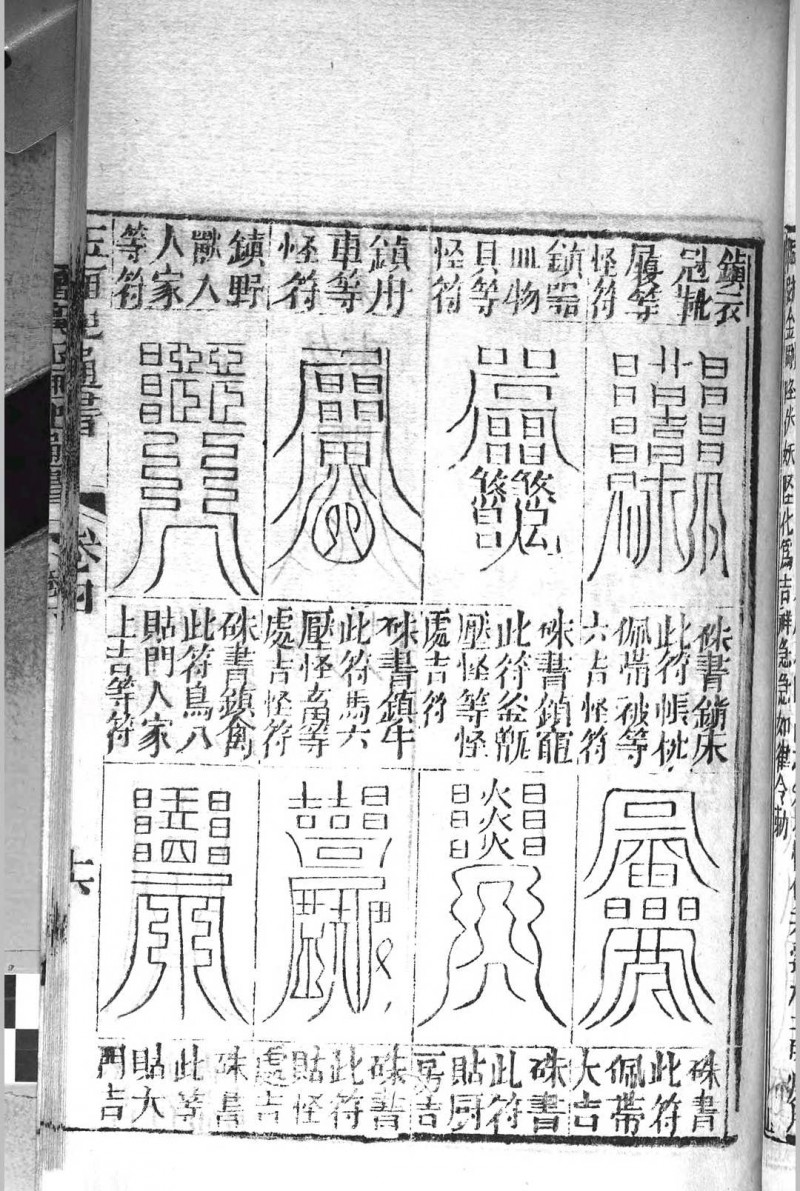 化爲吉祥急急如律令勅
鎮衣
冠靴
履等
怪符
鎮器
皿物
具等
怪符
鎮舟
車等
怪符
鎮野
獸入
人家
等符
硃書鎮床
此符帳枕
佩帶被等
大吉怪符
硃書鎮竈
此符釜甑
壓怪等怪
處吉符
硃書鎮牛
此符馬六
壓怪畜等
處吉怪符
硃書鎮禽
此符鳥入
貼門人家
上吉等符
硃書
此符
佩帶
大吉
硃書
此符
貼厨
房吉
硃書
此符
貼怪
處吉
硃書
此等
貼大
門吉
玉匣記通書
卷四
十六